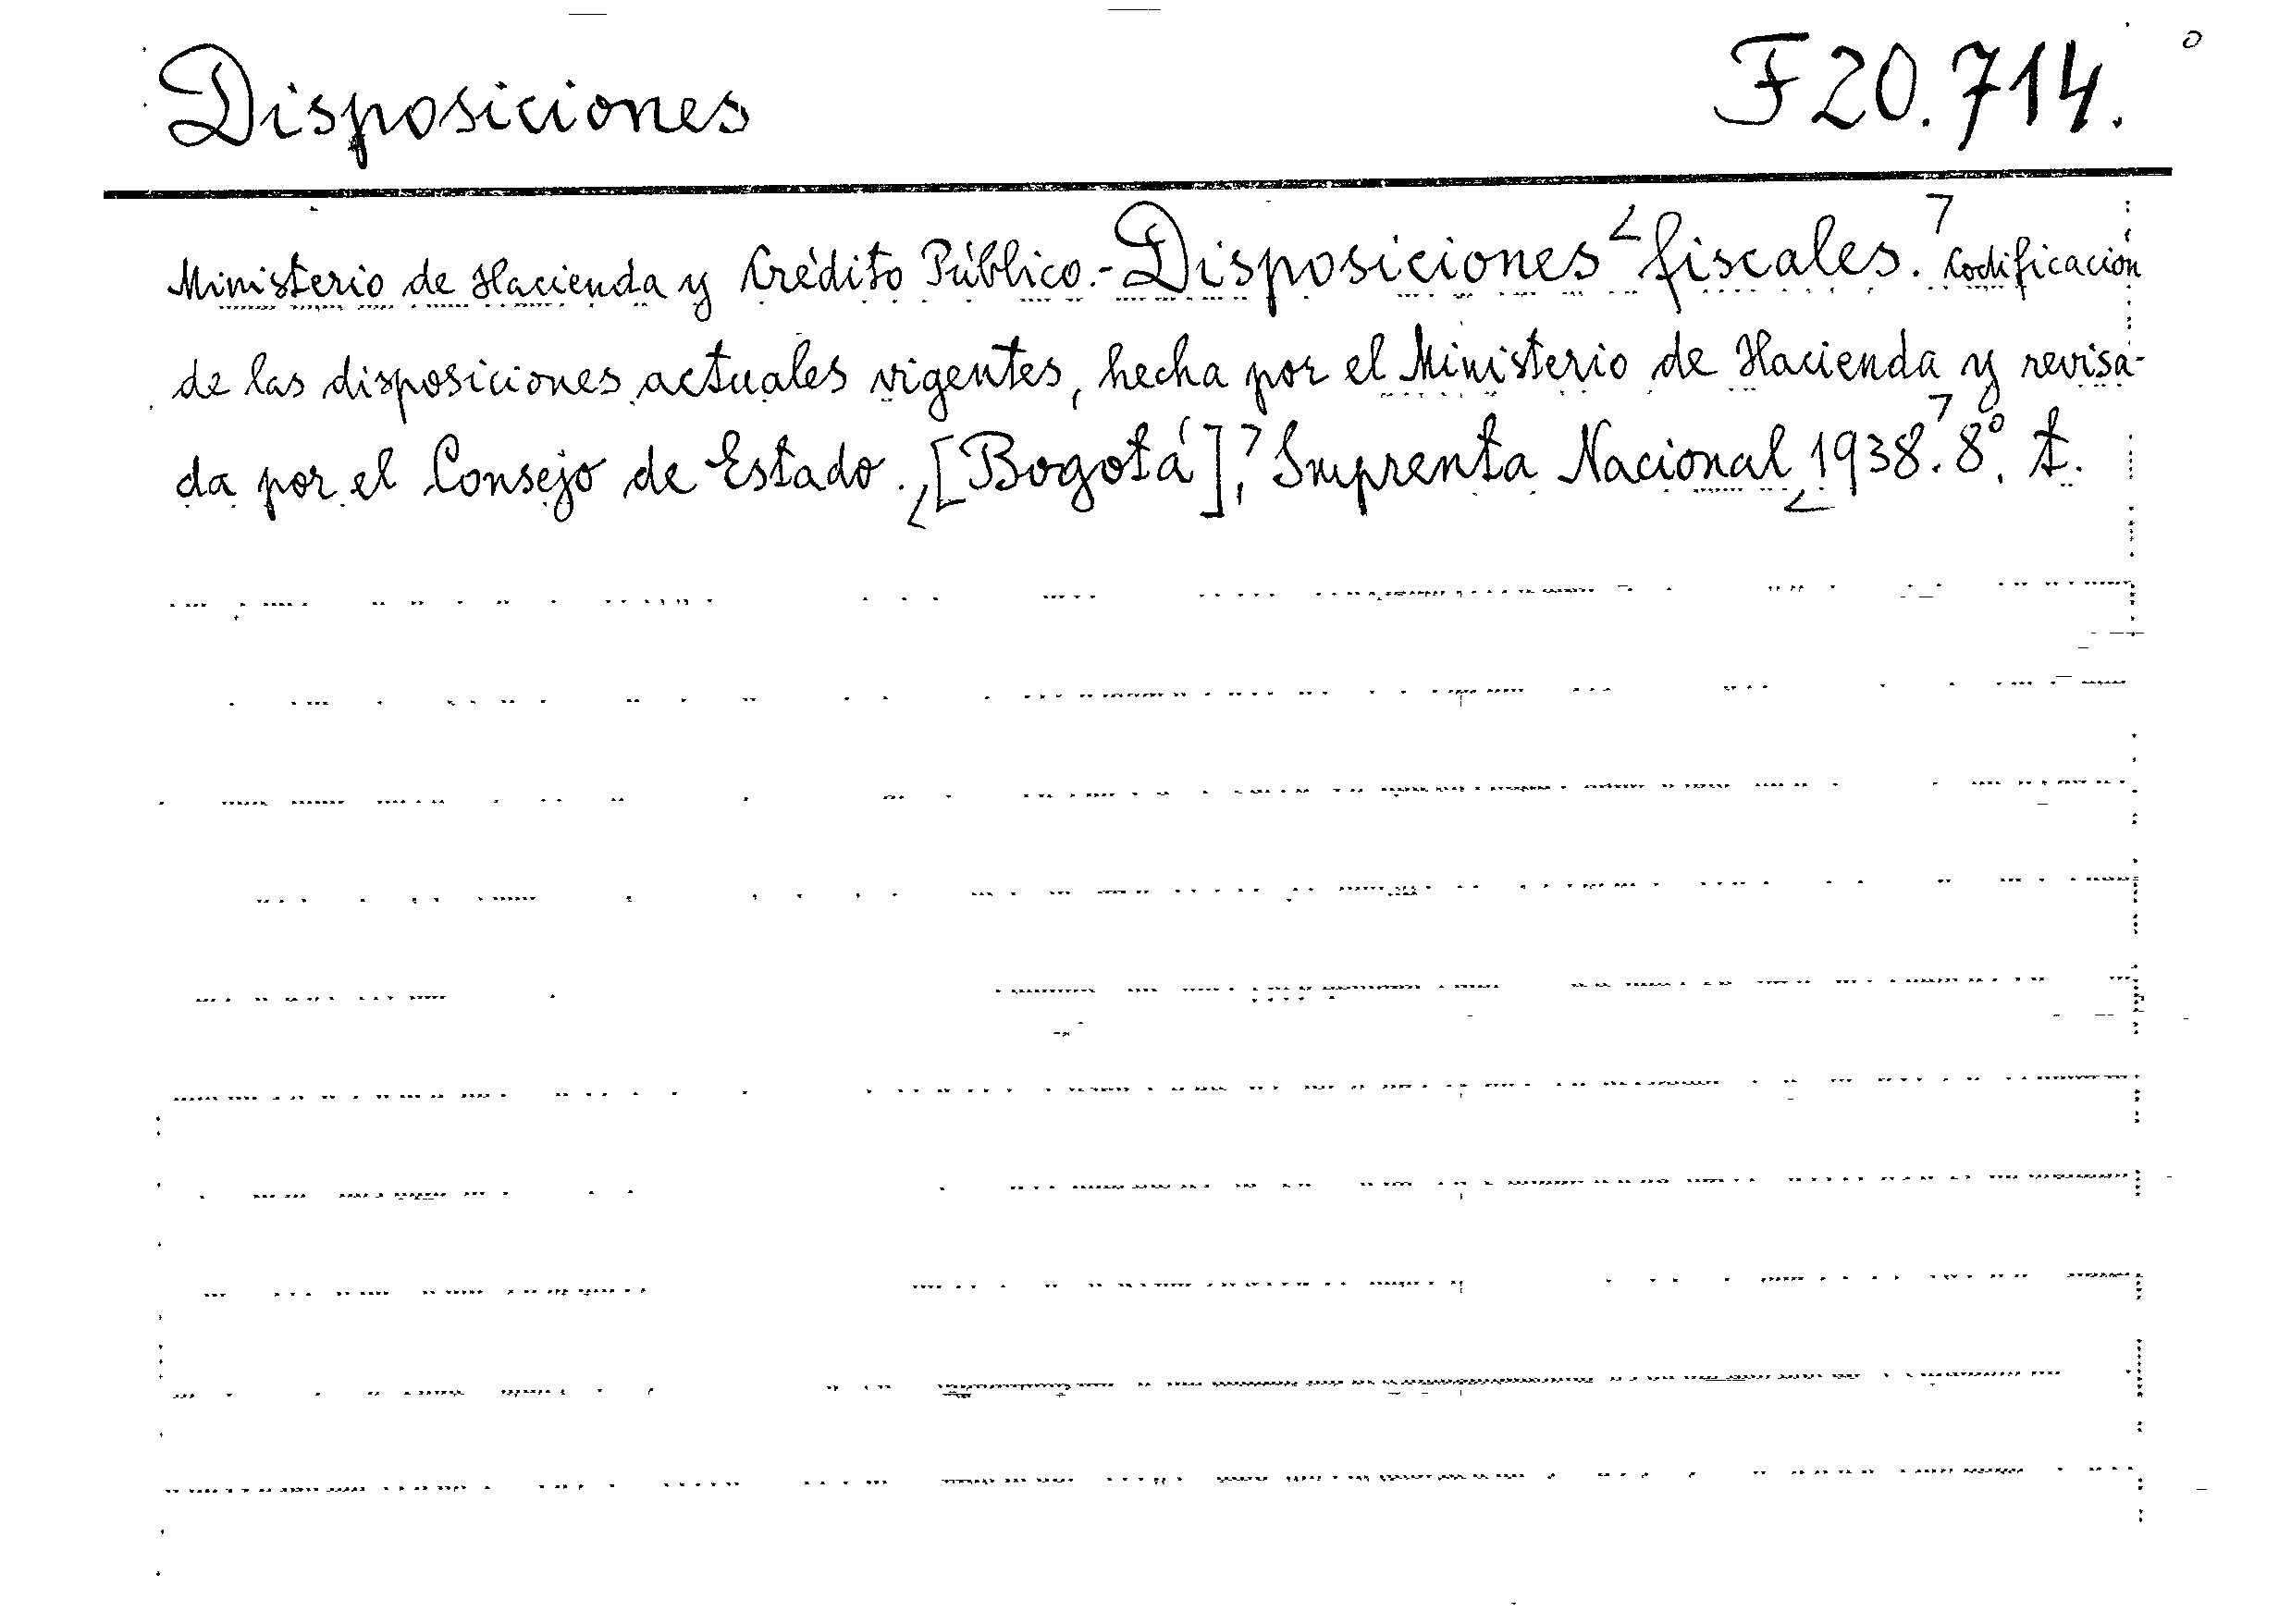 Disposiciones F 20.714.
Ministerio de Hacienda y Crédito Público.- Disposiciones fiscales. Codificación
de las disposiciones actuales vigentes, hecha por el Ministerio de Hacienda y revisa-
da por el Consejo de Estado., [Bogotá], Imprenta Nacional, 1938. 8º. t.